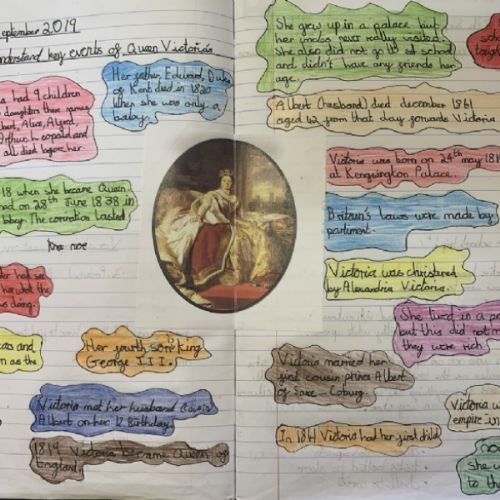 September 2019
understand key events of Queen Victoria's
Her father, Edward, Duke
of Kent died in 1820
when she was only a
baby.
had 9 children
daughters there names
Alice, Alfred,
Arthur, Leopold and
all died before her.
18 when she became Queen
on 28th June 1838 in
Abbey. The coronation lasted
had set
her what the
was doing.
and
as the
Her fourth son King
George III.
Victoria met her husband
Albert on her 17 Birthday.
1819 Victoria became Queen of
England.
She grew up in a palace but
her males never really visited.
She also did not go to school
and didn't have any friends her
age.
Albert (husband) died december 1861
aged 42 from that day forwards Victoria
Victoria was born on 24th may 1819
at Kensington Palace.
Britain's Laws were made by
parliment.
Victoria was christened
by Alexandria Victoria.
She lived in a
but this did not
they were rich.
Victoria named her
first cousin prince Albert
of Saxe-Coburg.
In 1841 Victoria had her first child
Victoria
empire in
she
to th